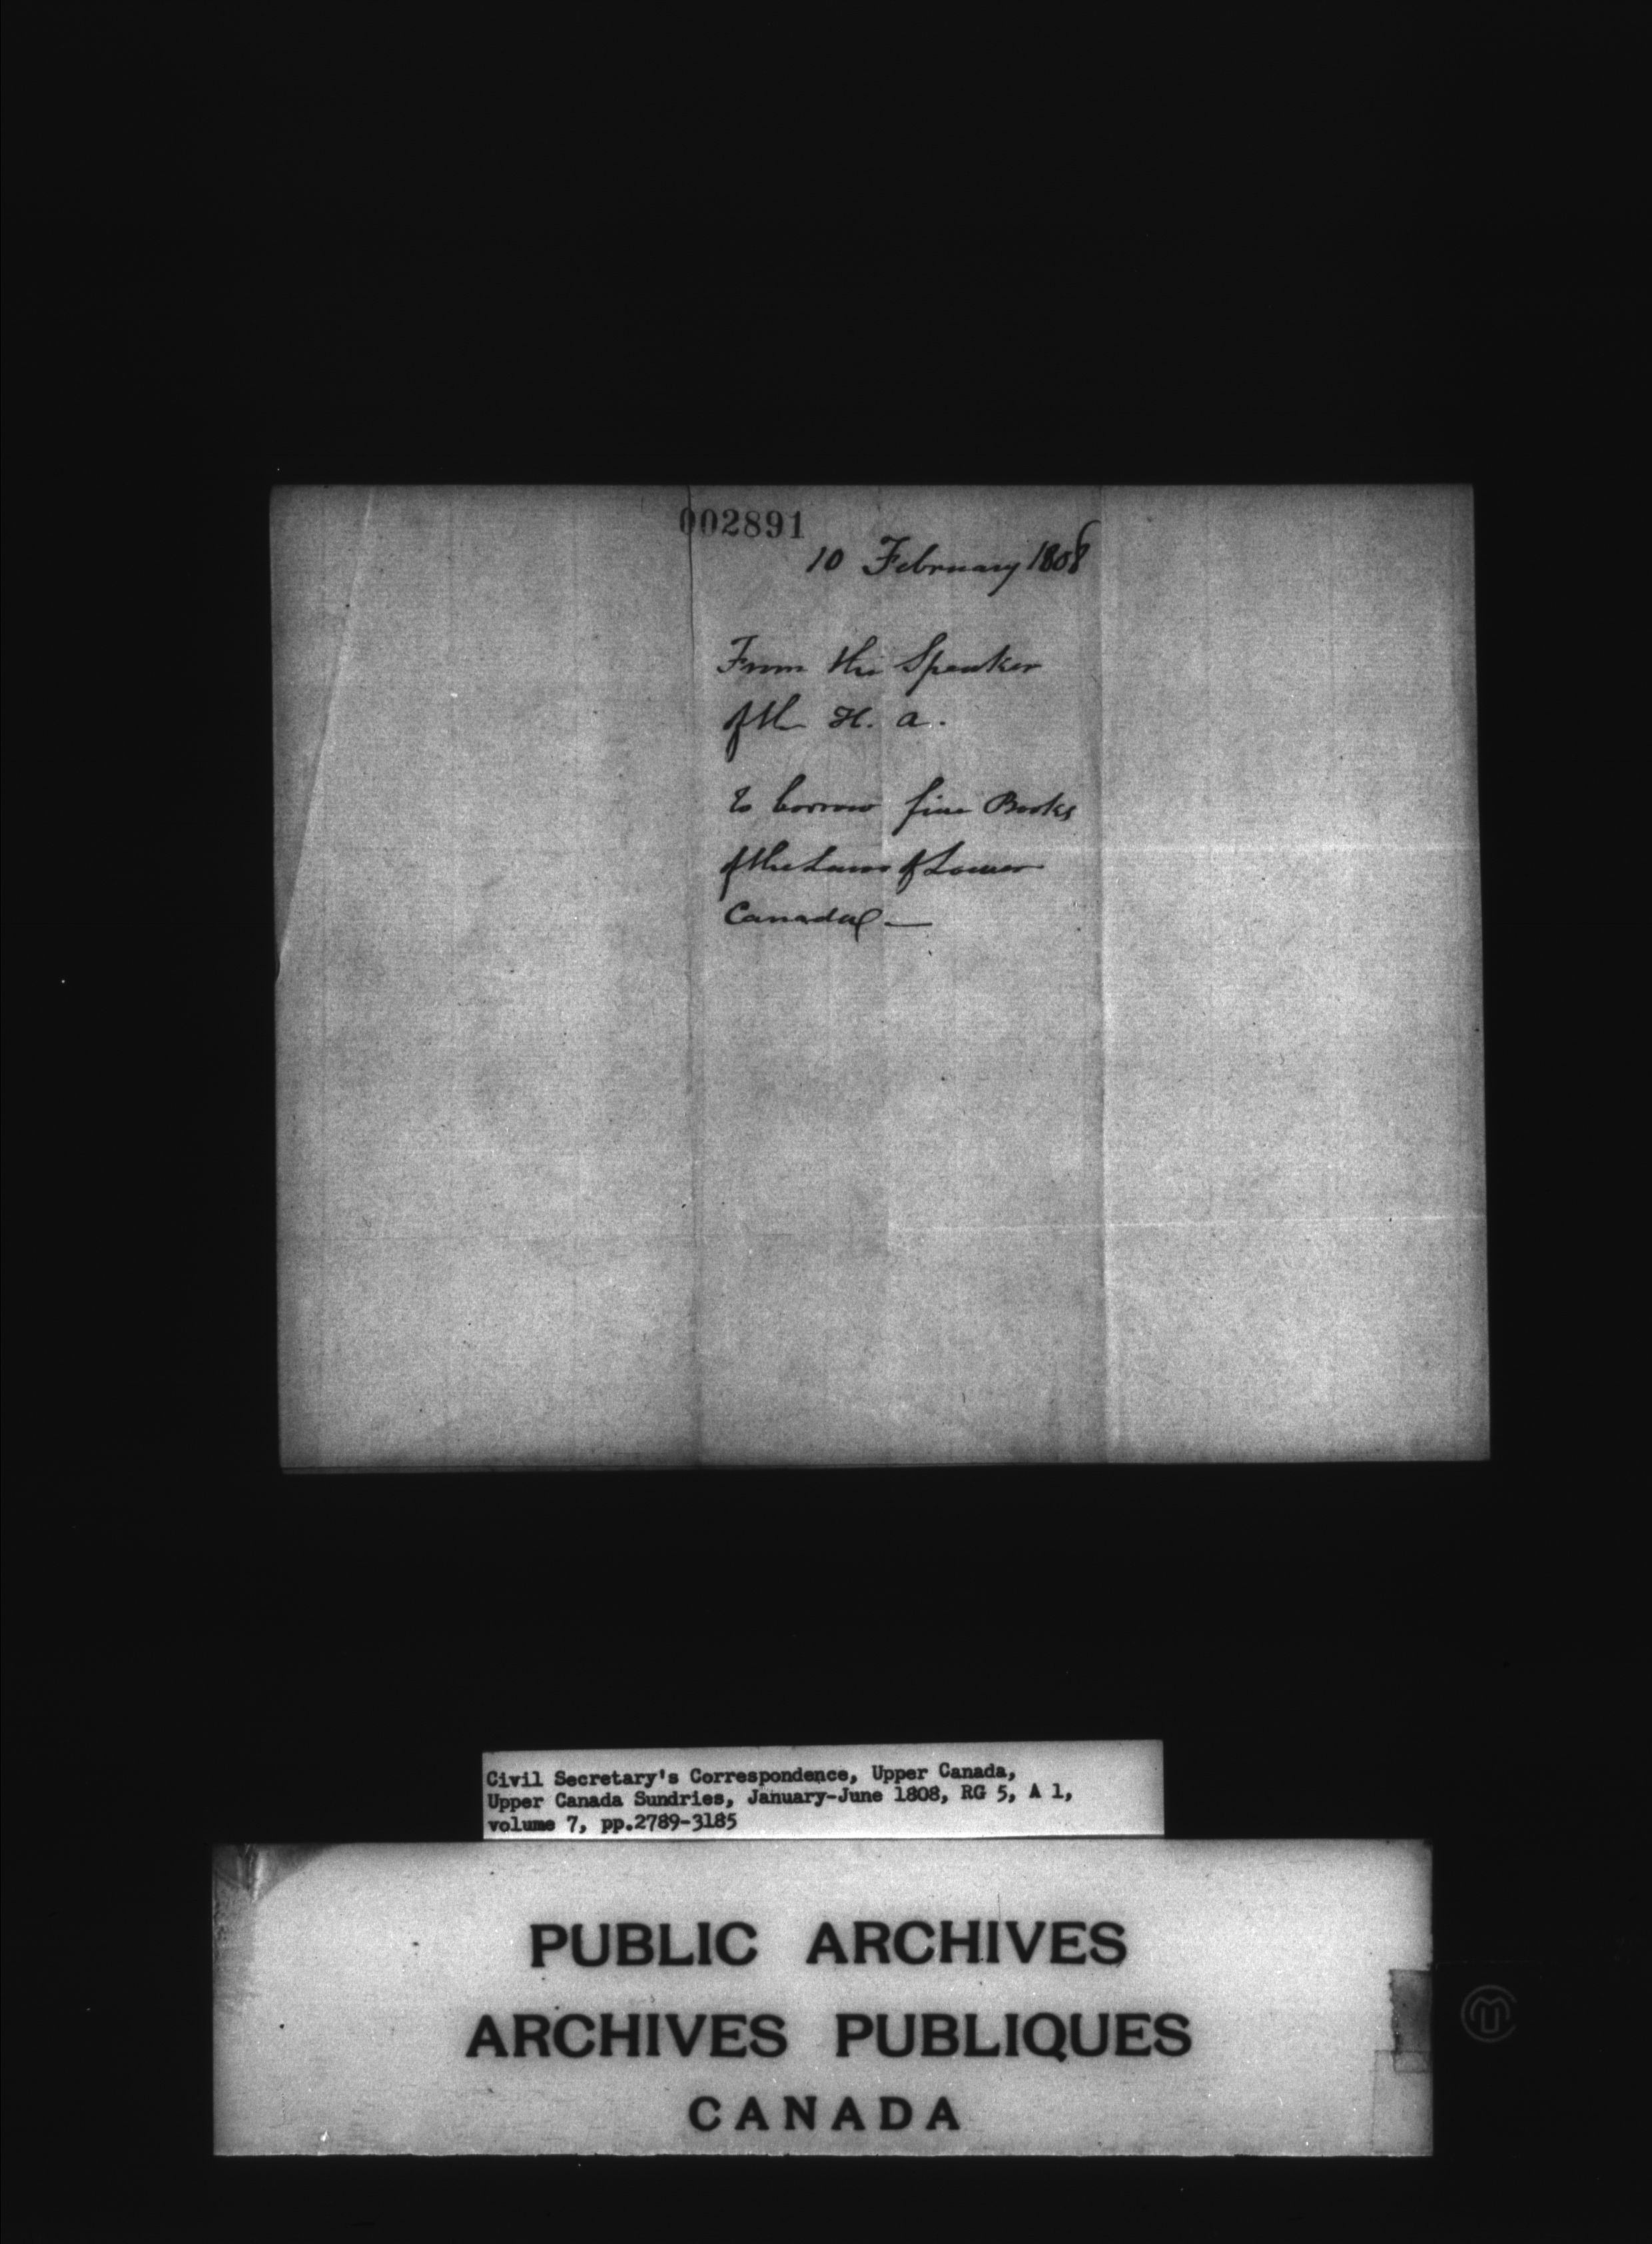 002891
10 February 1808
From the Speaker
of the H. A.
to borrow five Books
of the Laws of Lower
Canada —
Civil Secretary's Correspondence, Upper Canada,
Upper Canada Sundries, January-June 1808, RG 5, A 1,
volume 7, pp.2789-3185
PUBLIC ARCHIVES
ARCHIVES PUBLIQUES
CANADA